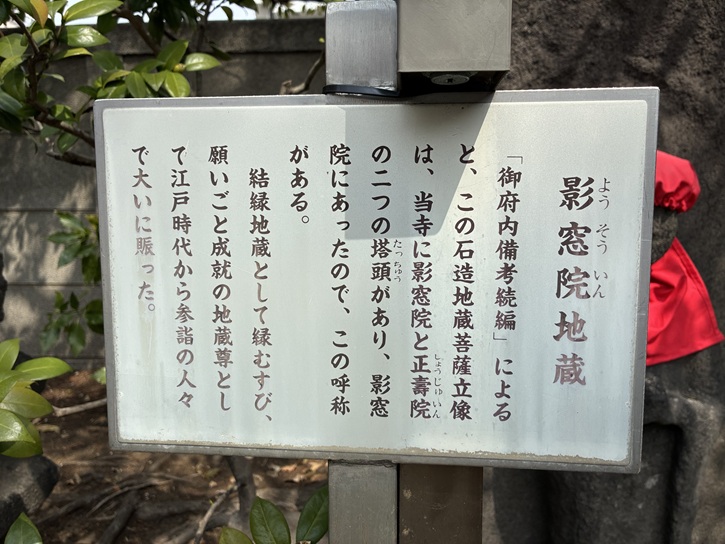 影窓院地蔵
ようそういん
「御府内備考続編」による
と、この石造地蔵菩薩立像
は、当寺に影窓院と正壽院
しょうじゅいん
の二つの塔頭があり、影窓
たっちゅう
院にあったので、この呼称
がある。
結縁地蔵として縁むすび、
願いごと成就の地蔵尊とし
て江戸時代から参詣の人々
で大いに賑った。